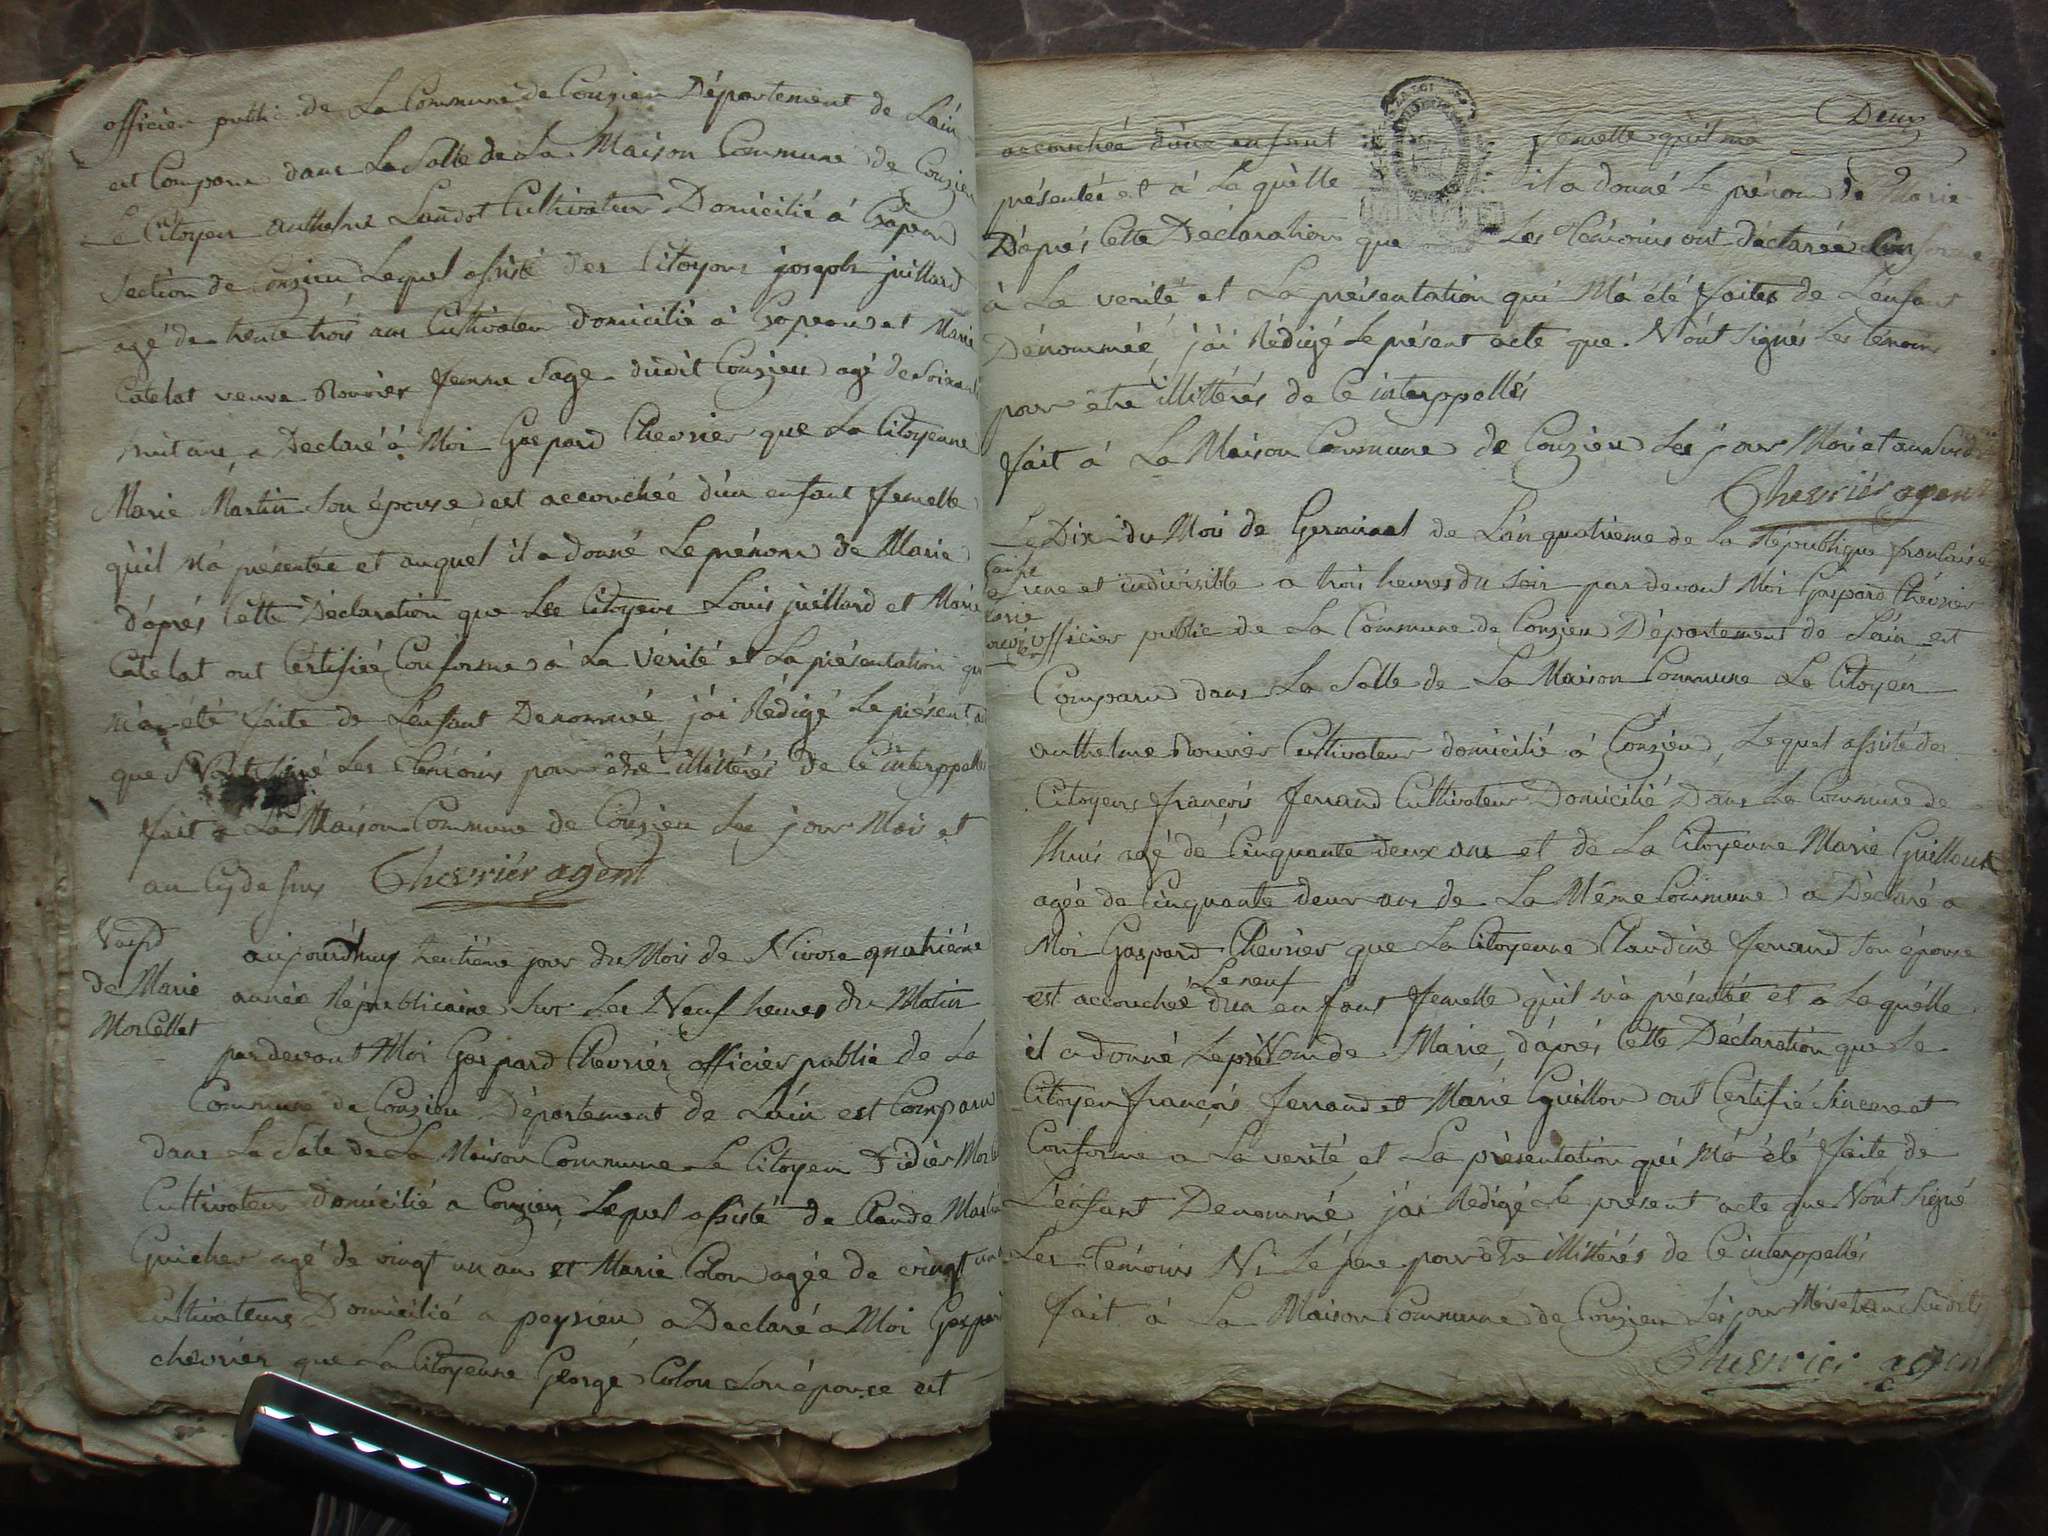 officier public de La Commune de Conzieu Département de Lain
est Comparu dans La Salle de La Maison Commune de Conzieu
Le Citoyen anthelme Landot Cultivateur Domicilié á Crapeou
Séction de Conzieu Lequel assisté des Citoyens joseph juillard
agé de trente trois ans Cultivateur domicilié á Crapeou et Marie
Catelat veuve Rouvier femme Sage dudit Conzieu agé de Soixante
huit ans, a Déclaré á Moi Gaspard Chevrier que La Citoyenne
Marie Martin Son épouse est accouchée d'un enfant femelle
qu'il M'a présentée et auquel il a donné Le prénom de Marie
d'aprés Cette Déclaration que Les Citoyens Louis juillard et Marie
Catelat ont Certifiée Conforme á La Vérité et La présentation qui
m'a été faite de L'enfant Denommée j'ai Rédigé Le présent
que N'ont Signé Les témoins pour étre illittérés de Ce interppellés
fait a La Maison Commune de Conzieu Les jour Mois et
an Cydessus Chevriér agent
de Marie
Morcellet
aujourd'huy huitiéme jour du Mois de Nivose quatriéme
année Républicaine Sur Les Neuf heures du Matin
pardevant Moi Gaspard Chevriér officier public de La
Commune de Conzieu Département de Lain est Comparu
dans La Sale de La Maison Commune Le Citoyen Didier
Cultivateur domicilié a Conzieu, Lequel assisté de Claude Martin
Guicher agé de vingt un an et Marie Colon agée de vingt un
Cultivateurs Domicilié a peysieu a Declaré a Moi Gaspard
chevriér que La Citoyenne George Colon Son épouse est
Deux
accouchée d'une enfant femelle qu'il m'a
présentée et á Laquèlle il a donné Le prénom de Marie
D'aprés Cette Déclaration que Les Témoins ont déclarée Conforme
á La verité et La présentation qui M'a été faites de L'enfant
Dénommée, j'ai Rédigé Le présent acte que N'ont Signés Les témoins
pour étre illittérés de Ce interppellés
fait á La Maison Commune de Conzieu Les jour Mois et an Susdit
Chevriér agent
Le Dix du Mois de Germinal de L'an quatrieme de La République francaise
une et indivisible a trois heures du Soir par devant Moi Gaspard Chevrier
officier public de La Commune de Conzieu Département de Lain est
Comparu dans La Salle de La Maison Commune Le Citoyen
anthelme Rouvier Cultivateur domicilié á Conzieu, Lequel assisté des
Citoyens françois ferrand Cultivateur Domicilié Dans La Commune de
thuis agé de Cinquante deux ans et de La Citoyenne Marie Guilloux
agée de Cinquante deux ans de La Même Commune a Déclaré a
Moi Gaspard Chevriér que La Citoyenne Claudine ferrand Son épouse
Le neuf
est accouchée d'un enfant femelle qu'il m'a présentée et a Laquélle
il a donné Le préNom de Marie, d'aprés Cette Déclaration que Le
Citoyen françois ferrand et Marie Guillou ont Certifié Sincere et
Conforme a La verité et La présentation qui M'a été faite de
L'énfant Denommé j'ai Redigé Le présent acte que N'ont Signé
Les Témoins Ni Le pere pour étre illittérés de Ce interppellés
fait á La Maison Commune de Conzieu Les jour Mois et an Susdits
Chevrier agent